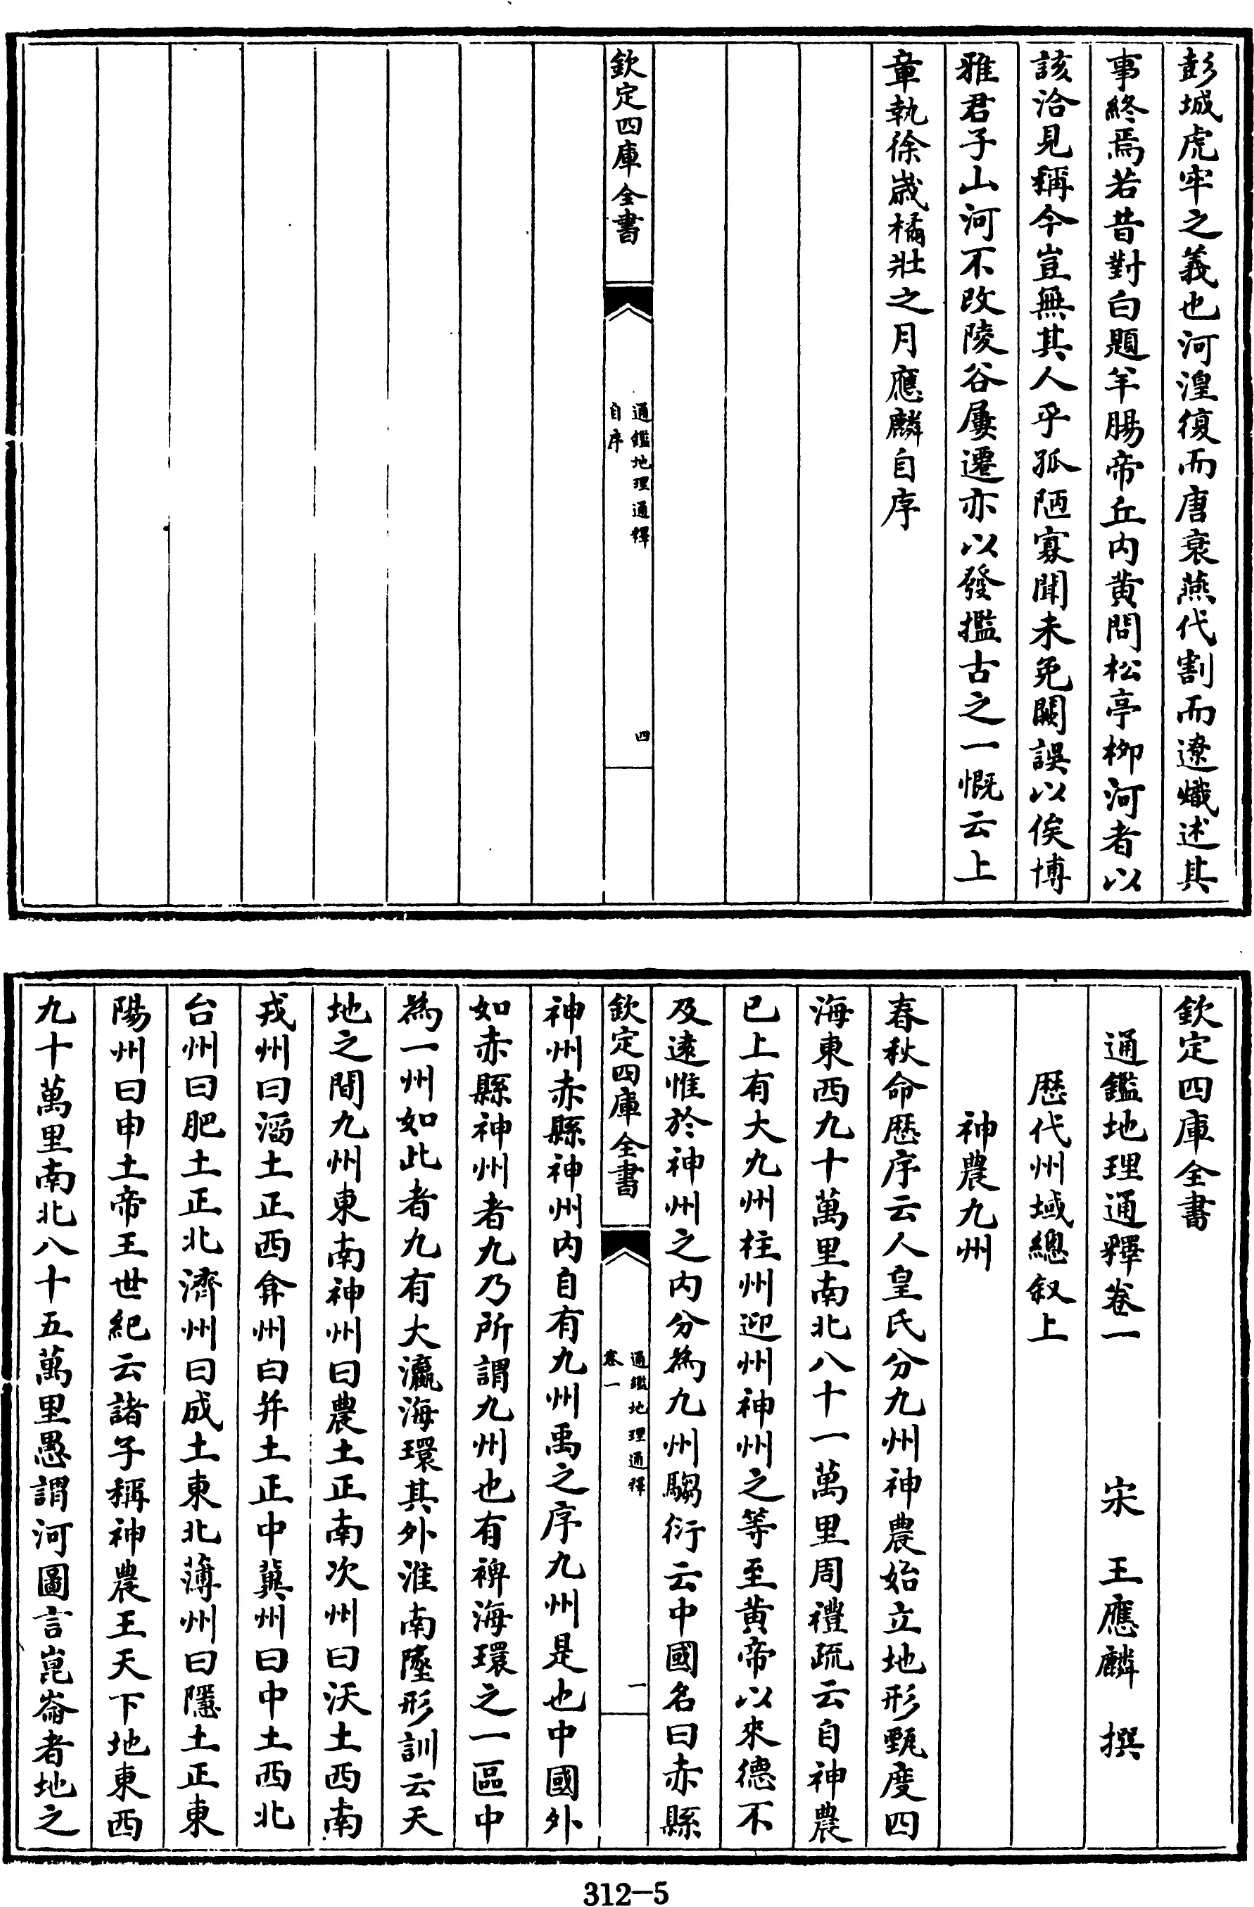 彭城虎牢之義也河湟復而唐衰燕代割而遼熾述其
事終焉若昔對白題羊腸帝丘内黄問松亭柳河者以
該洽見稱今豈無其人乎孤陋寡聞未免闕誤以俟博
雅君子山河不改陵谷屢遷亦以發攬古之一慨云上
章執徐歲橘壯之月應麟自序
欽定四庫全書
通鑑地理通釋
自序
四
欽定四庫全書
通鑑地理通釋卷一
宋 王應麟 撰
歷代州域總叙上
神農九州
春秋命歷序云人皇氏分九州神農始立地形甄度四
海東西九十萬里南北八十一萬里周禮疏云自神農
已上有大九州柱州迎州神州之等至黄帝以來德不
及逺惟於神州之内分為九州騶衍云中國名曰赤縣
欽定四庫全書
通鑑地理通釋
卷一
一
神州赤縣神州内自有九州禹之序九州是也中國外
如赤縣神州者九乃所謂九州也有裨海環之一區中
為一州如此者九有大瀛海環其外淮南墬形訓云天
地之間九州東南神州曰農土正南次州曰沃土西南
戎州曰滔土正西弇州曰并土正中冀州曰中土西北
台州曰肥土正北濟州曰成土東北薄州曰隱土正東
陽州曰申土帝王世紀云諸子稱神農王天下地東西
九十萬里南北八十五萬里愚謂河圖言崑崙者地之
312-5